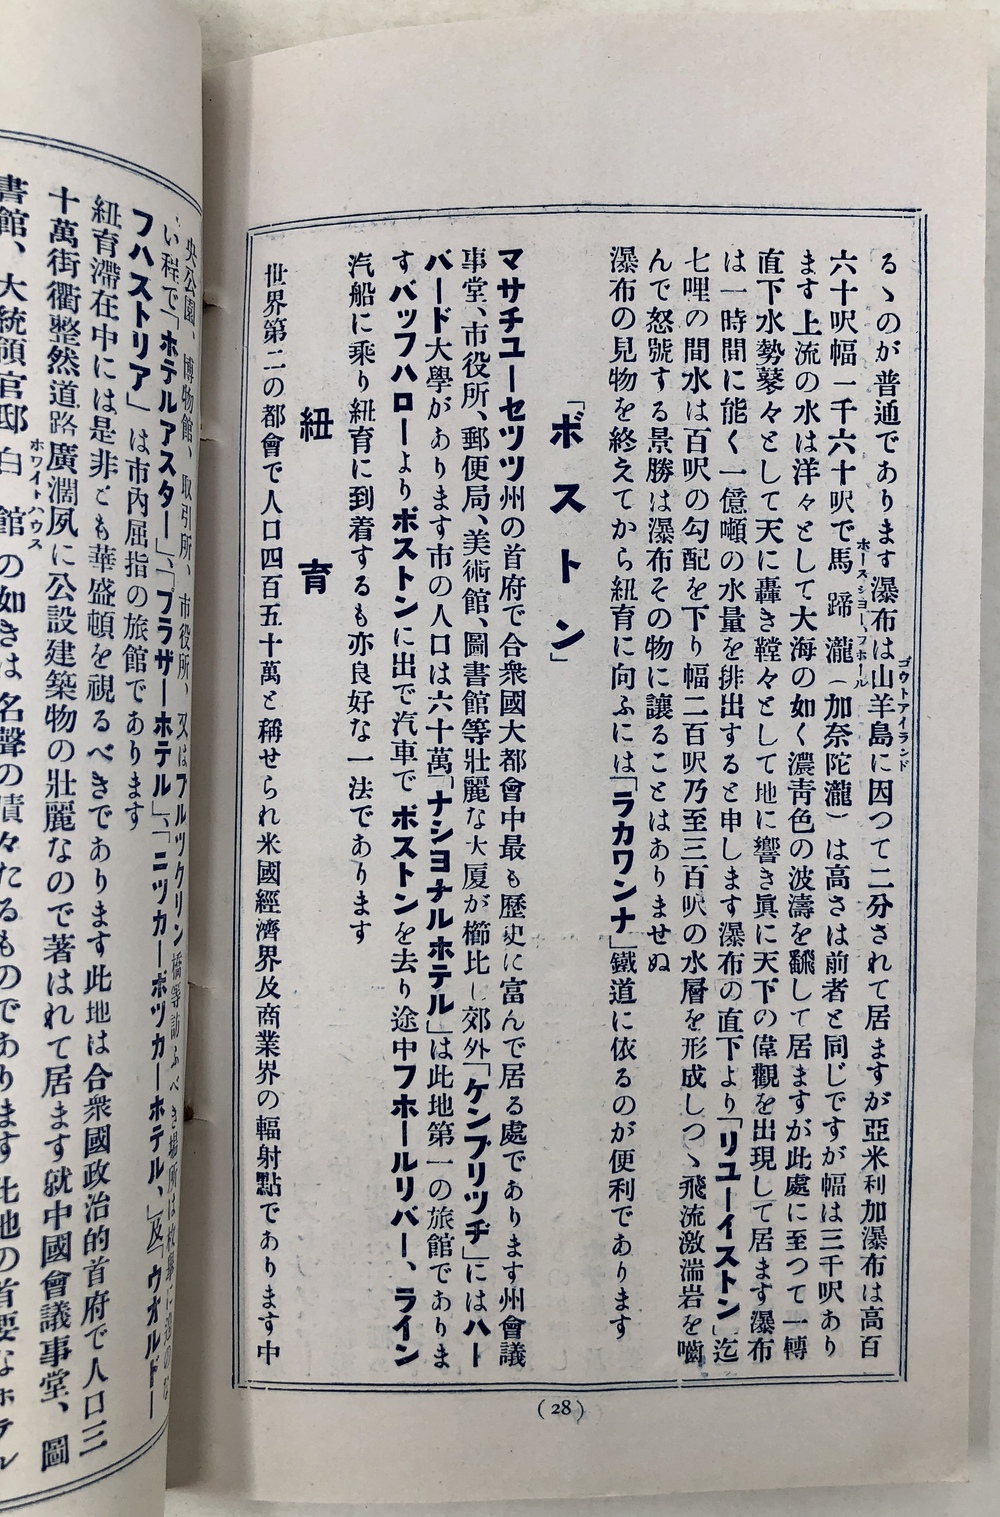 るゝのが普通であります瀑布は山羊島に因つて二分されて居ますが亞米利加瀑布は高百
ゴウトアイランド
六十呎幅一千六十呎で馬蹄瀧(加奈陀瀧)は高さは前者と同じですが幅は三千呎あり
ホースシヨーフホール
ます上流の水は洋々として大海の如く濃青色の波濤を飜して居ますが此處に至つて一轉
直下水勢蓼々として天に轟き鞺々として地に響き眞に天下の偉觀を出現して居ます瀑布
は一時間に能く一億噸の水量を排出すると申します瀑布の直下より「リユーイストン」迄
七哩の間水は百呎の勾配を下り幅二百呎乃至三百呎の水層を形成しつゝ飛流激湍岩を嚙
んで怒號する景勝は瀑布その物に讓ることはありませぬ
瀑布の見物を終えてから紐育に向ふには「ラカワンナ」鐵道に依るのが便利であります
「ボストン」
マサチユーセツツ州の首府で合衆國大都會中最も歷史に富んで居る處であります州會議
事堂、市役所、郵便局、美術館、圖書館等壯麗な大厦が櫛比し郊外「ケンブリツヂ」にはハー
バード大學があります市の人口は六十萬「ナシヨナルホテル」は此地第一の旅館でありま
すバッフハローよりボストンに出で汽車でボストンを去り途中フホールリバー、ライン
汽船に乘り紐育に到着するも亦良好な一法であります
紐育
世界第二の都會で人口四百五十萬と稱せられ米國經濟界及商業界の輻射點であります中
(28)
央公園、博物館、取引所、市役所、又はブルツクリン橋等訪ふべき場所は枚擧に遑のな
い程で「ホテルアスター」、「プラザーホテル」、「ニツカーボツカーホテル、」及「ウオルドー
フハストリア」は市內屈指の旅館であります
紐育滯在中には是非とも華盛頓を視るべきであります此地は合衆國政治的首府で人口三
十萬街衢整然道路廣濶夙に公設建築物の壯麗なので著はれて居ます就中國會議事堂、圖
書館、大統領官邸白館の如きは名聲の嘖々たるものであります此地の首要なホテル
ホワイトハウス